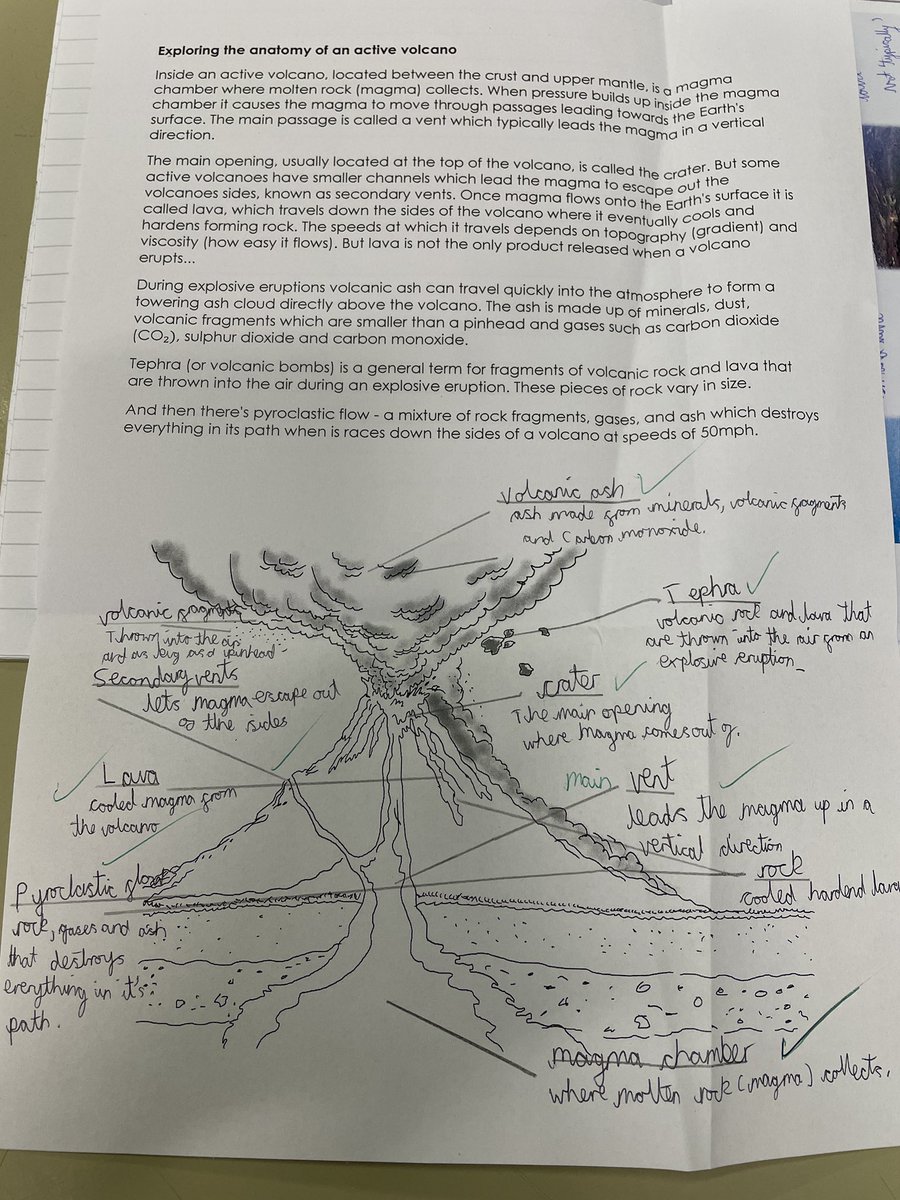 Exploring the anatomy of an active volcano
Inside an active volcano, located between the crust and upper mantle, is a magma
chamber where molten rock (magma) collects. When pressure builds up inside the magma
chamber it causes the magma to move through passages leading towards the Earth's
surface. The main passage is called a vent which typically leads the magma in a vertical
direction.
The main opening, usually located at the top of the volcano, is called the crater. But some
active volcanoes have smaller channels which lead the magma to escape out the
volcanoes sides, known as secondary vents. Once magma flows onto the Earth's surface it is
called lava, which travels down the sides of the volcano where it eventually cools and
hardens forming rock. The speeds at which it travels depends on topography (gradient) and
viscosity (how easy it flows). But lava is not the only product released when a volcano
erupts...
During explosive eruptions volcanic ash can travel quickly into the atmosphere to form a
towering ash cloud directly above the volcano. The ash is made up of minerals, dust,
volcanic fragments which are smaller than a pinhead and gases such as carbon dioxide
(CO₂), sulphur dioxide and carbon monoxide.
Tephra (or volcanic bombs) is a general term for fragments of volcanic rock and lava that
are thrown into the air during an explosive eruption. These pieces of rock vary in size.
And then there's pyroclastic flow - a mixture of rock fragments, gases, and ash which destroys
everything in its path when is races down the sides of a volcano at speeds of 50mph.
Volcanic ash
ash made from minerals, volcanic fragments
and Carbon monoxide.
Tephra
volcanic rock and lava that
are thrown into the air from an
explosive eruption
volcanic
Thrown into the air
and as
Secondary vents
lets magma escape out
of the sides
crater
The main opening
where magma comes out of.
Lava
cooled magma from
the volcano
main vent
leads the magma up in a
vertical direction
rock
cooled hardend lava
Pyroclastic flow
rock, gases and ash
that destroys
everything in it's
path.
magma chamber
where molten rock (magma) collects.
not typically)